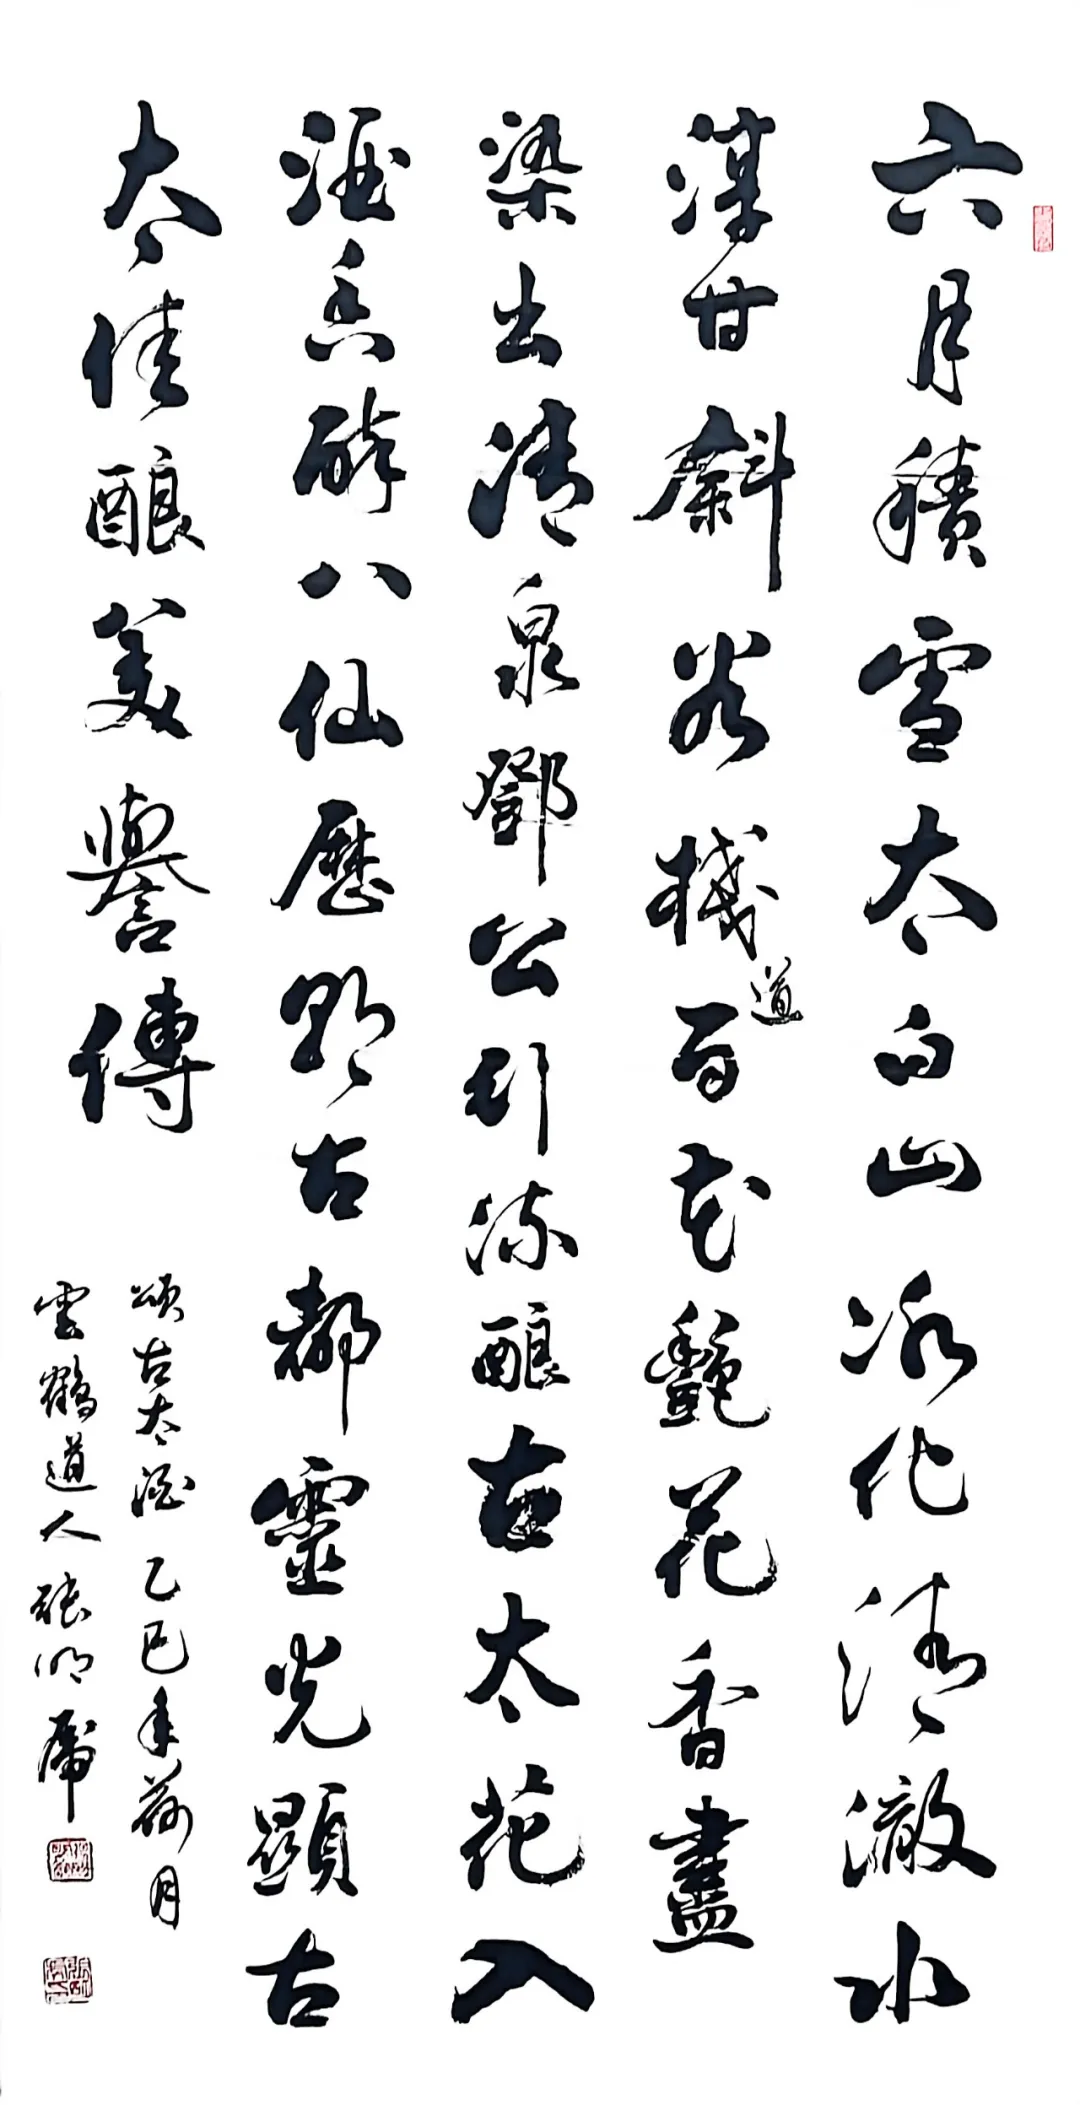 六月積雪太白山冰化清澈水
深甘斜谷棧道百花艷花香盡
染出清泉鄧公引流酿古太花入
酒香醉八仙歷朝古都靈光顯古
太佳酿美譽傳
頌古太酒 乙巳年荷月
雲鶴道人張明虎